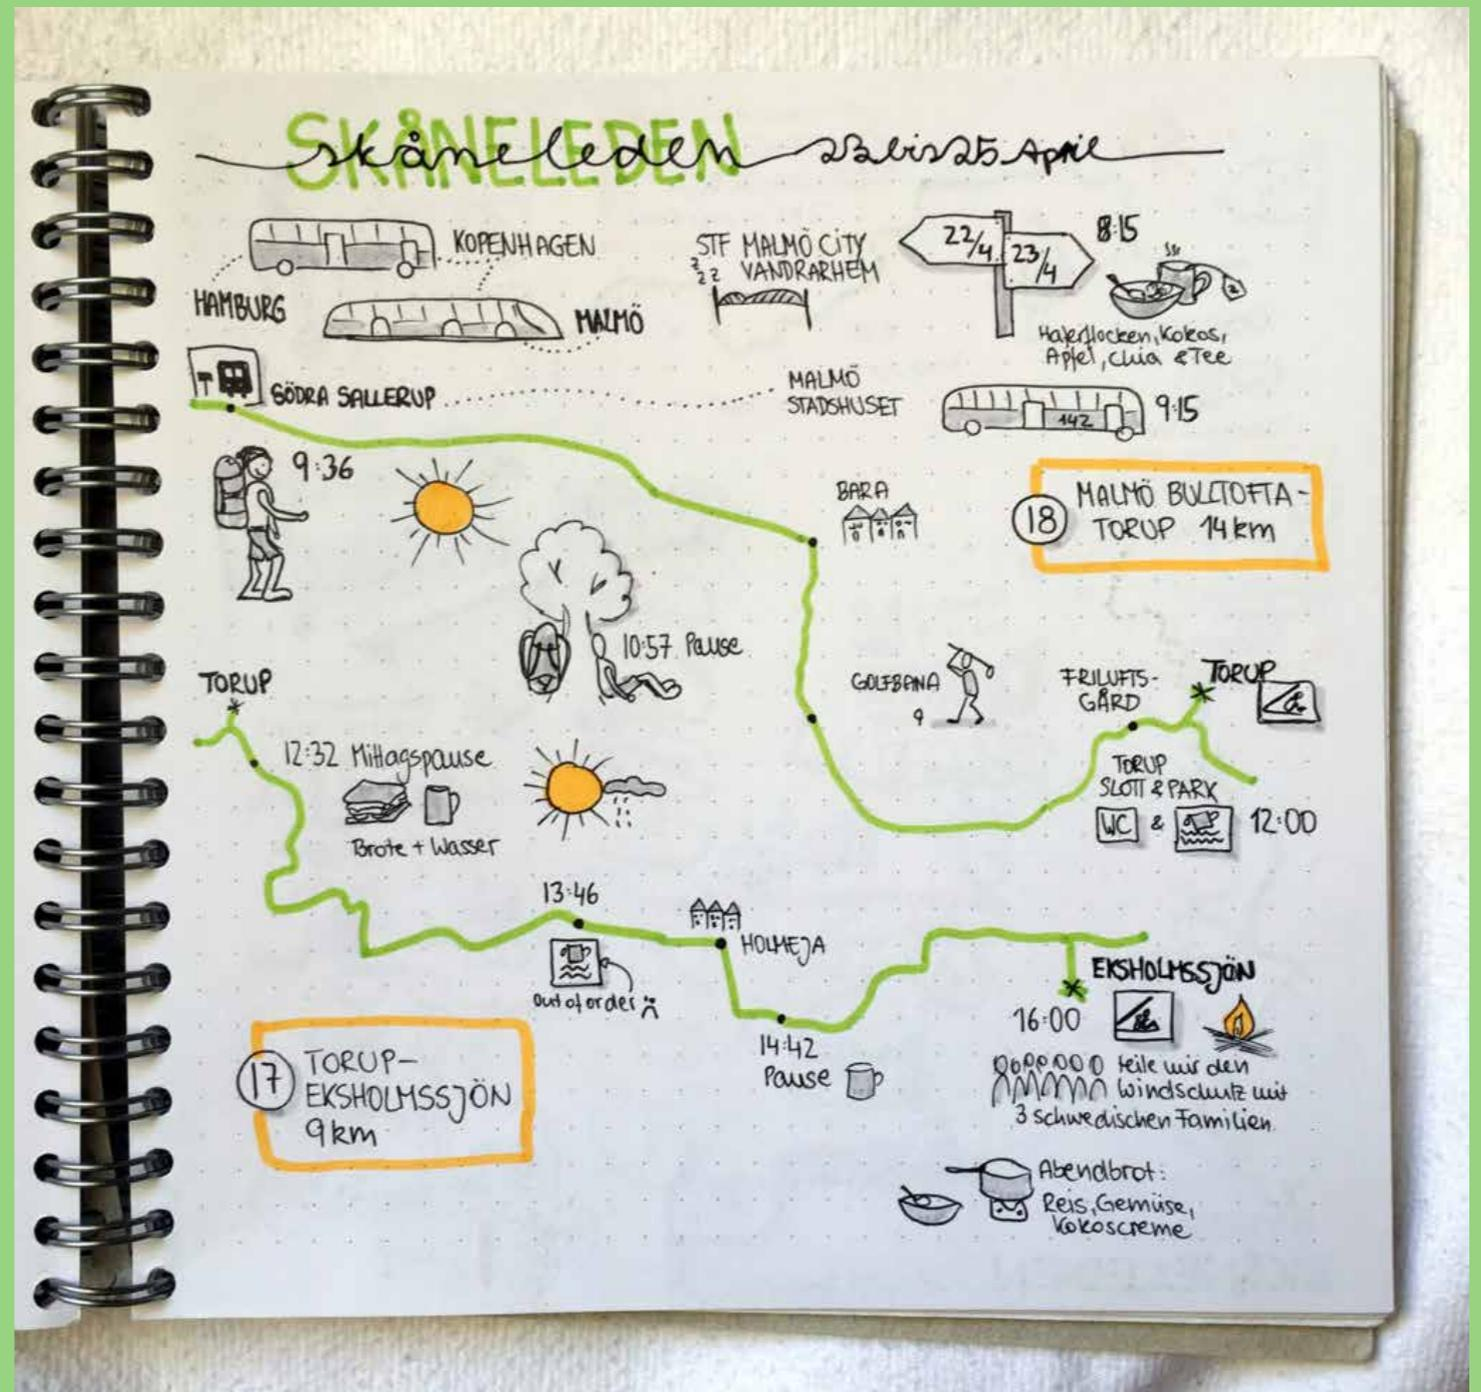 SKÅNELEDEN
skåneleden 23 bis 25 April
HAMBURG
KOPENHAGEN
MALMÖ
STF MALMÖ CITY
VANDRARHEM
zzz
22/4
23/4
8:15
Haferflocken, Kokos,
Apfel, Chia & Tee
SÖDRA SALLERUP
MALMÖ
STADSHUSET
142
9:15
9:36
BARA
18
MALMÖ BULLTOFTA-
TORUP 14km
10:57 Pause
GOLFBANA
9
FRILUFTS-
GÅRD
TORUP
TORUP
SLOTT & PARK
WC & 12:00
TORUP
12:32 Mittagspause
Brote + Wasser
13:46
out of order
HOLMEJA
14:42
Pause
EKSHOLMSSJÖN
16:00
teile mir den
Windschutz mit
3 schwedischen Familien
17
TORUP-
EKSHOLMSSJÖN
9km
Abendbrot:
Reis, Gemüse,
Kokoscreme